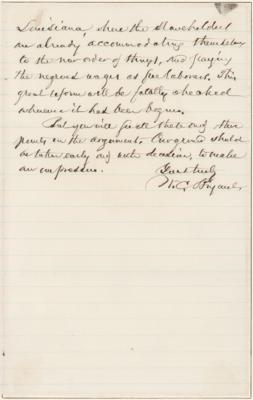 Louisiana, where the slaveholders
are already accommodating themselves
to the new order of things, and paying
the negroes wages as free laborers. This
great reform will be fatally checked
whenever it has been begun.
But you will see all these and other
points in the argument. Our ground should
be taken early and with decision, to make
an impression.
Yours truly
W. C. Bryant